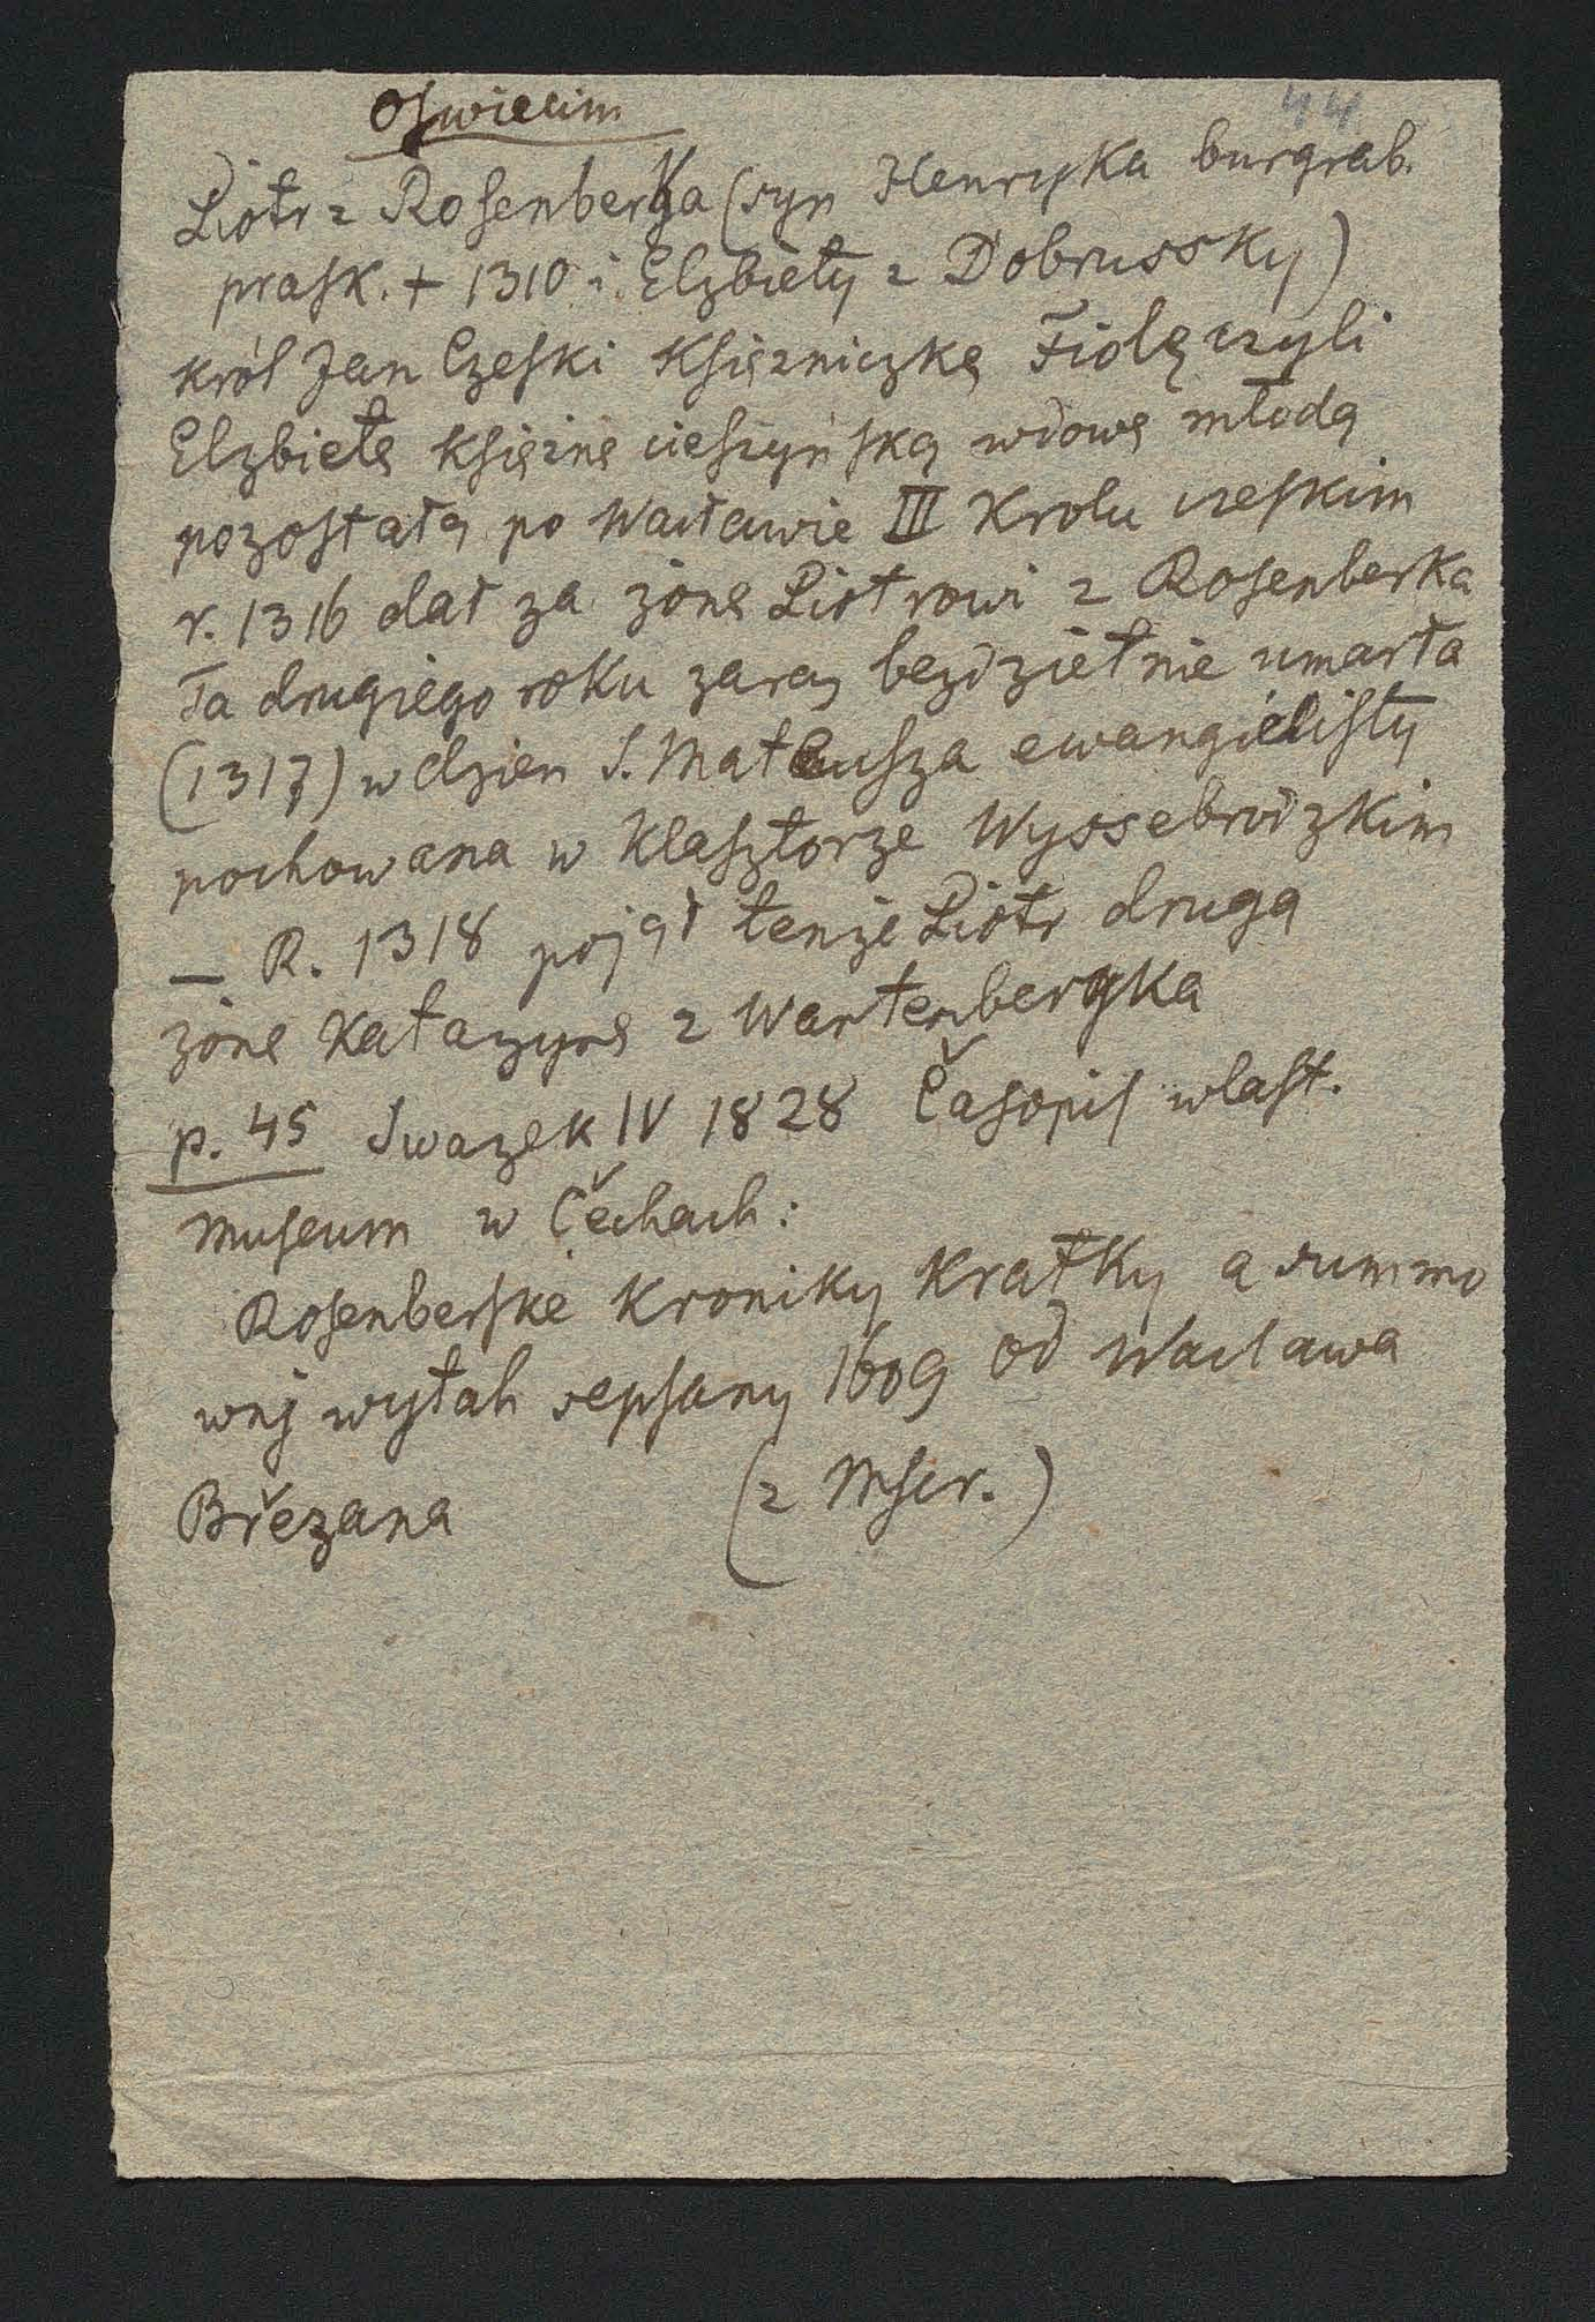 Oswiecim
44
Piotr z Rosenberka (syn Henryka burgrab.
prask. + 1310 i Elzbiety z Dobrussky)
król Jan Czeski Księzniczkę Fiolę czyli
Elzbietę Księżnę cieszyńską wdowę młodą
pozostałą po Wacławie III Krolu czeskim
r. 1316 dał za żonę Piotrowi z Rosenberka
Ta drugiego roku zaraz bezdzietnie umarła
(1317) w dzien S. Mateusza ewangielisty
pochowana w Klasztorze Wyssebrodzkim
— R. 1318 pojął tenże Piotr drugą
żonę Katazynę z Wartenbergka
p. 45 Swazek IV 1828 Časopis wlast.
Museum w Čechach:
Rosenberske Kroniky Kratky a summo
wnj wytah sepsany 1609 od Waclawa
Březana (z Mscr.)